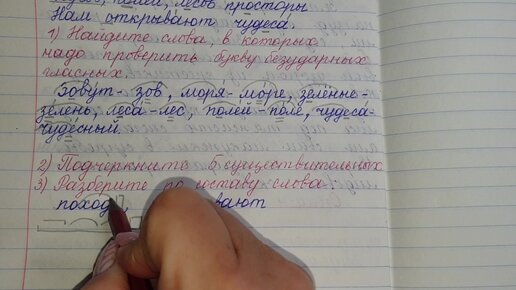 полей, лесов просторы
Нам открывают чудеса.
1) Найдите слова, в которых
надо проверить букву безударных
гласных.
Зовут - зов, моря - море, зелённые -
зелень, леса - лес, полей - поле, чудеса -
чудесный.
2) Подчеркнить 5 существительных
3) Разберите по составу слова
поход, вают